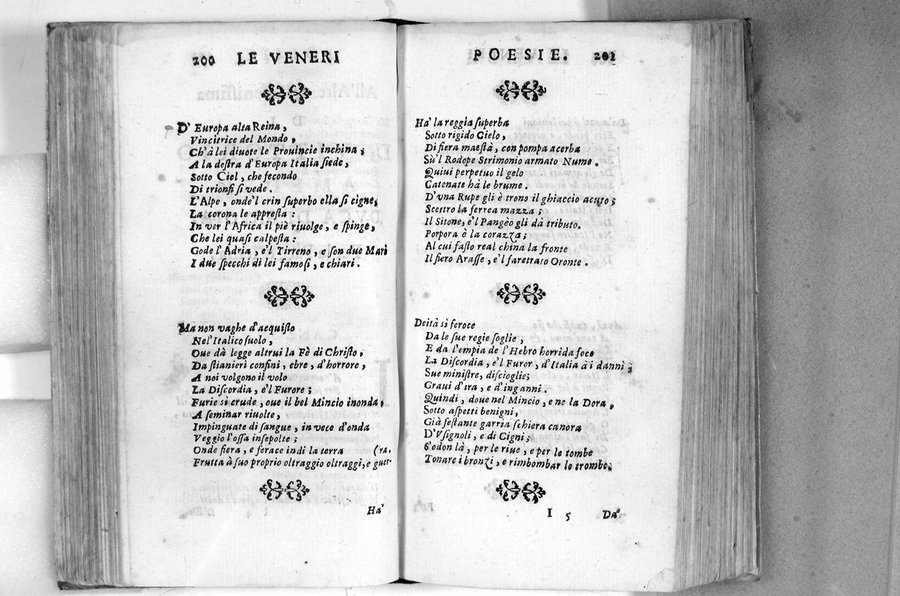 200 LE VENERI
D' Europa alta Reina,
Vincitrice del Mondo,
Ch'à lei diuote le Prouincie inchina;
A la destra d'Europa Italia siede,
Sotto Ciel, che fecondo
Di trionfi si vede.
L'Alpe, onde'l crin superbo ella si cigne,
La corona le appresta:
In ver l'Africa il piè riuolge, e spinge,
Che lei quasi calpesta:
Gode l'Adria, e'l Tirreno, e son due Mari
I due specchi di lei famosi, e chiari.
Ma non vaghe d'acquisto
Nel'Italico suolo,
Oue dà legge altrui la Fè di Christo,
Da stianieri confini, ebre, d'horrore,
A noi volgono il volo
La Discordia, e'l Furore;
Furie sì crude, oue il bel Mincio inonda,
A seminar riuolte,
Impinguate di sangue, in vece d'onda
Veggio l'ossa insepolte;
Onde fiera, e ferace indi la terra (ra.
Frutta à suo proprio oltraggio oltraggi, e guer-
Hà
POESIE. 201
Hà la reggia superba
Sotto rigido Cielo,
Di fiera maestà, con pompa acerba
Sù'l Rodope Strimonio armato Nume.
Quiui perpetuo il gelo
Catenate hà le brume.
D'vna Rupe gli è trono il ghiaccio acuto;
Scettro la ferrea mazza;
Il Sitone, e'l Pangèo gli dà tributo.
Porpora è la corazza;
Al cui fasto real china la fronte
Il fiero Arasse, e'l faretrato Oronte.
Deità sì feroce
Da le sue regie soglie,
E da l'empia de l'Hebro horrida foce
La Discordia, e'l Furor, d'Italia à i danni;
Sue ministre, discioglie;
Graui d'ira, e d'inganni.
Quindi, doue nel Mincio, e ne la Dora,
Sotto aspetti benigni,
Già festante garria schiera canora
D'Vsignoli, e di Cigni;
S'odon là, per le riue, e per le tombe
Tonare i bronzi, e rimbombar le trombe.
I 5 Da'